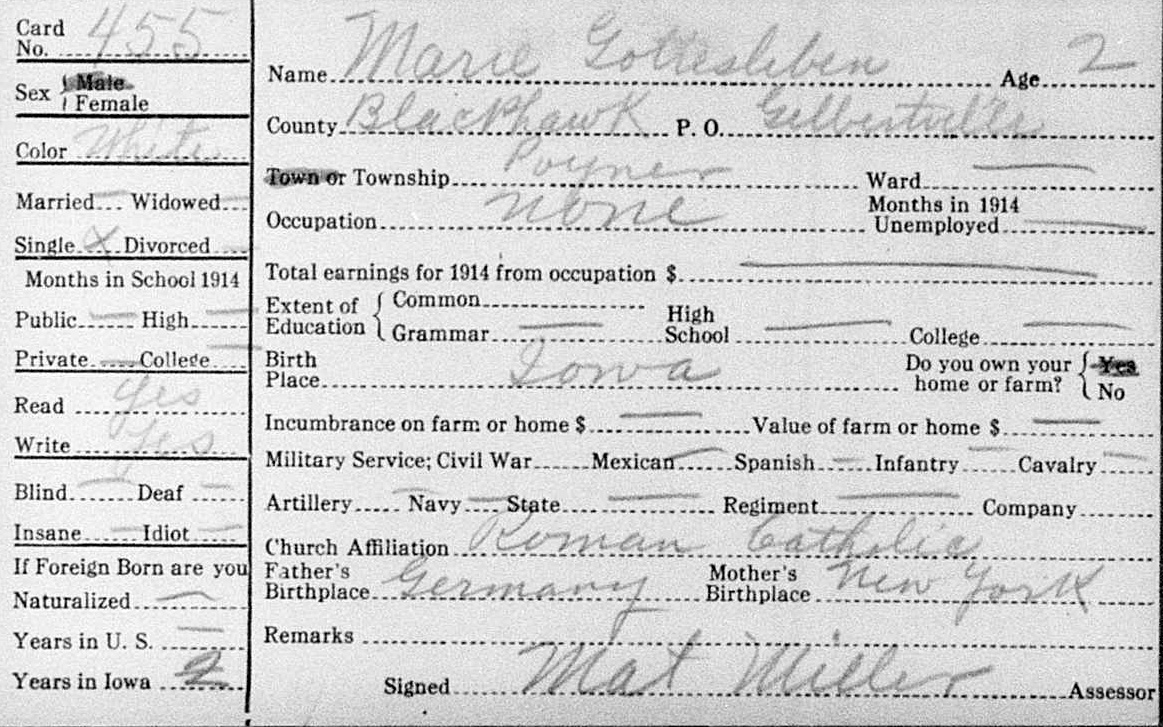 Card No. 455
Sex { Male
Female
Color White
Married Widowed
Single X Divorced
Months in School 1914
Public High
Private College
Read Yes
Write Yes
Blind Deaf
Insane Idiot
If Foreign Born are you
Naturalized
Years in U. S.
Years in Iowa 2
Name Marie Gottesleben Age 2
County Blackhawk P. O. Gilbertville
Town or Township Poyner Ward
Occupation None Months in 1914 Unemployed
Total earnings for 1914 from occupation $
Extent of Education { Common
Grammar High School College
Birth Place Iowa Do you own your home or farm? { Yes
No
Incumbrance on farm or home $ Value of farm or home $
Military Service; Civil War Mexican Spanish Infantry Cavalry
Artillery Navy State Regiment Company
Church Affiliation Roman Catholic
Father's Birthplace Germany Mother's Birthplace New York
Remarks
Signed Mat Miller Assessor